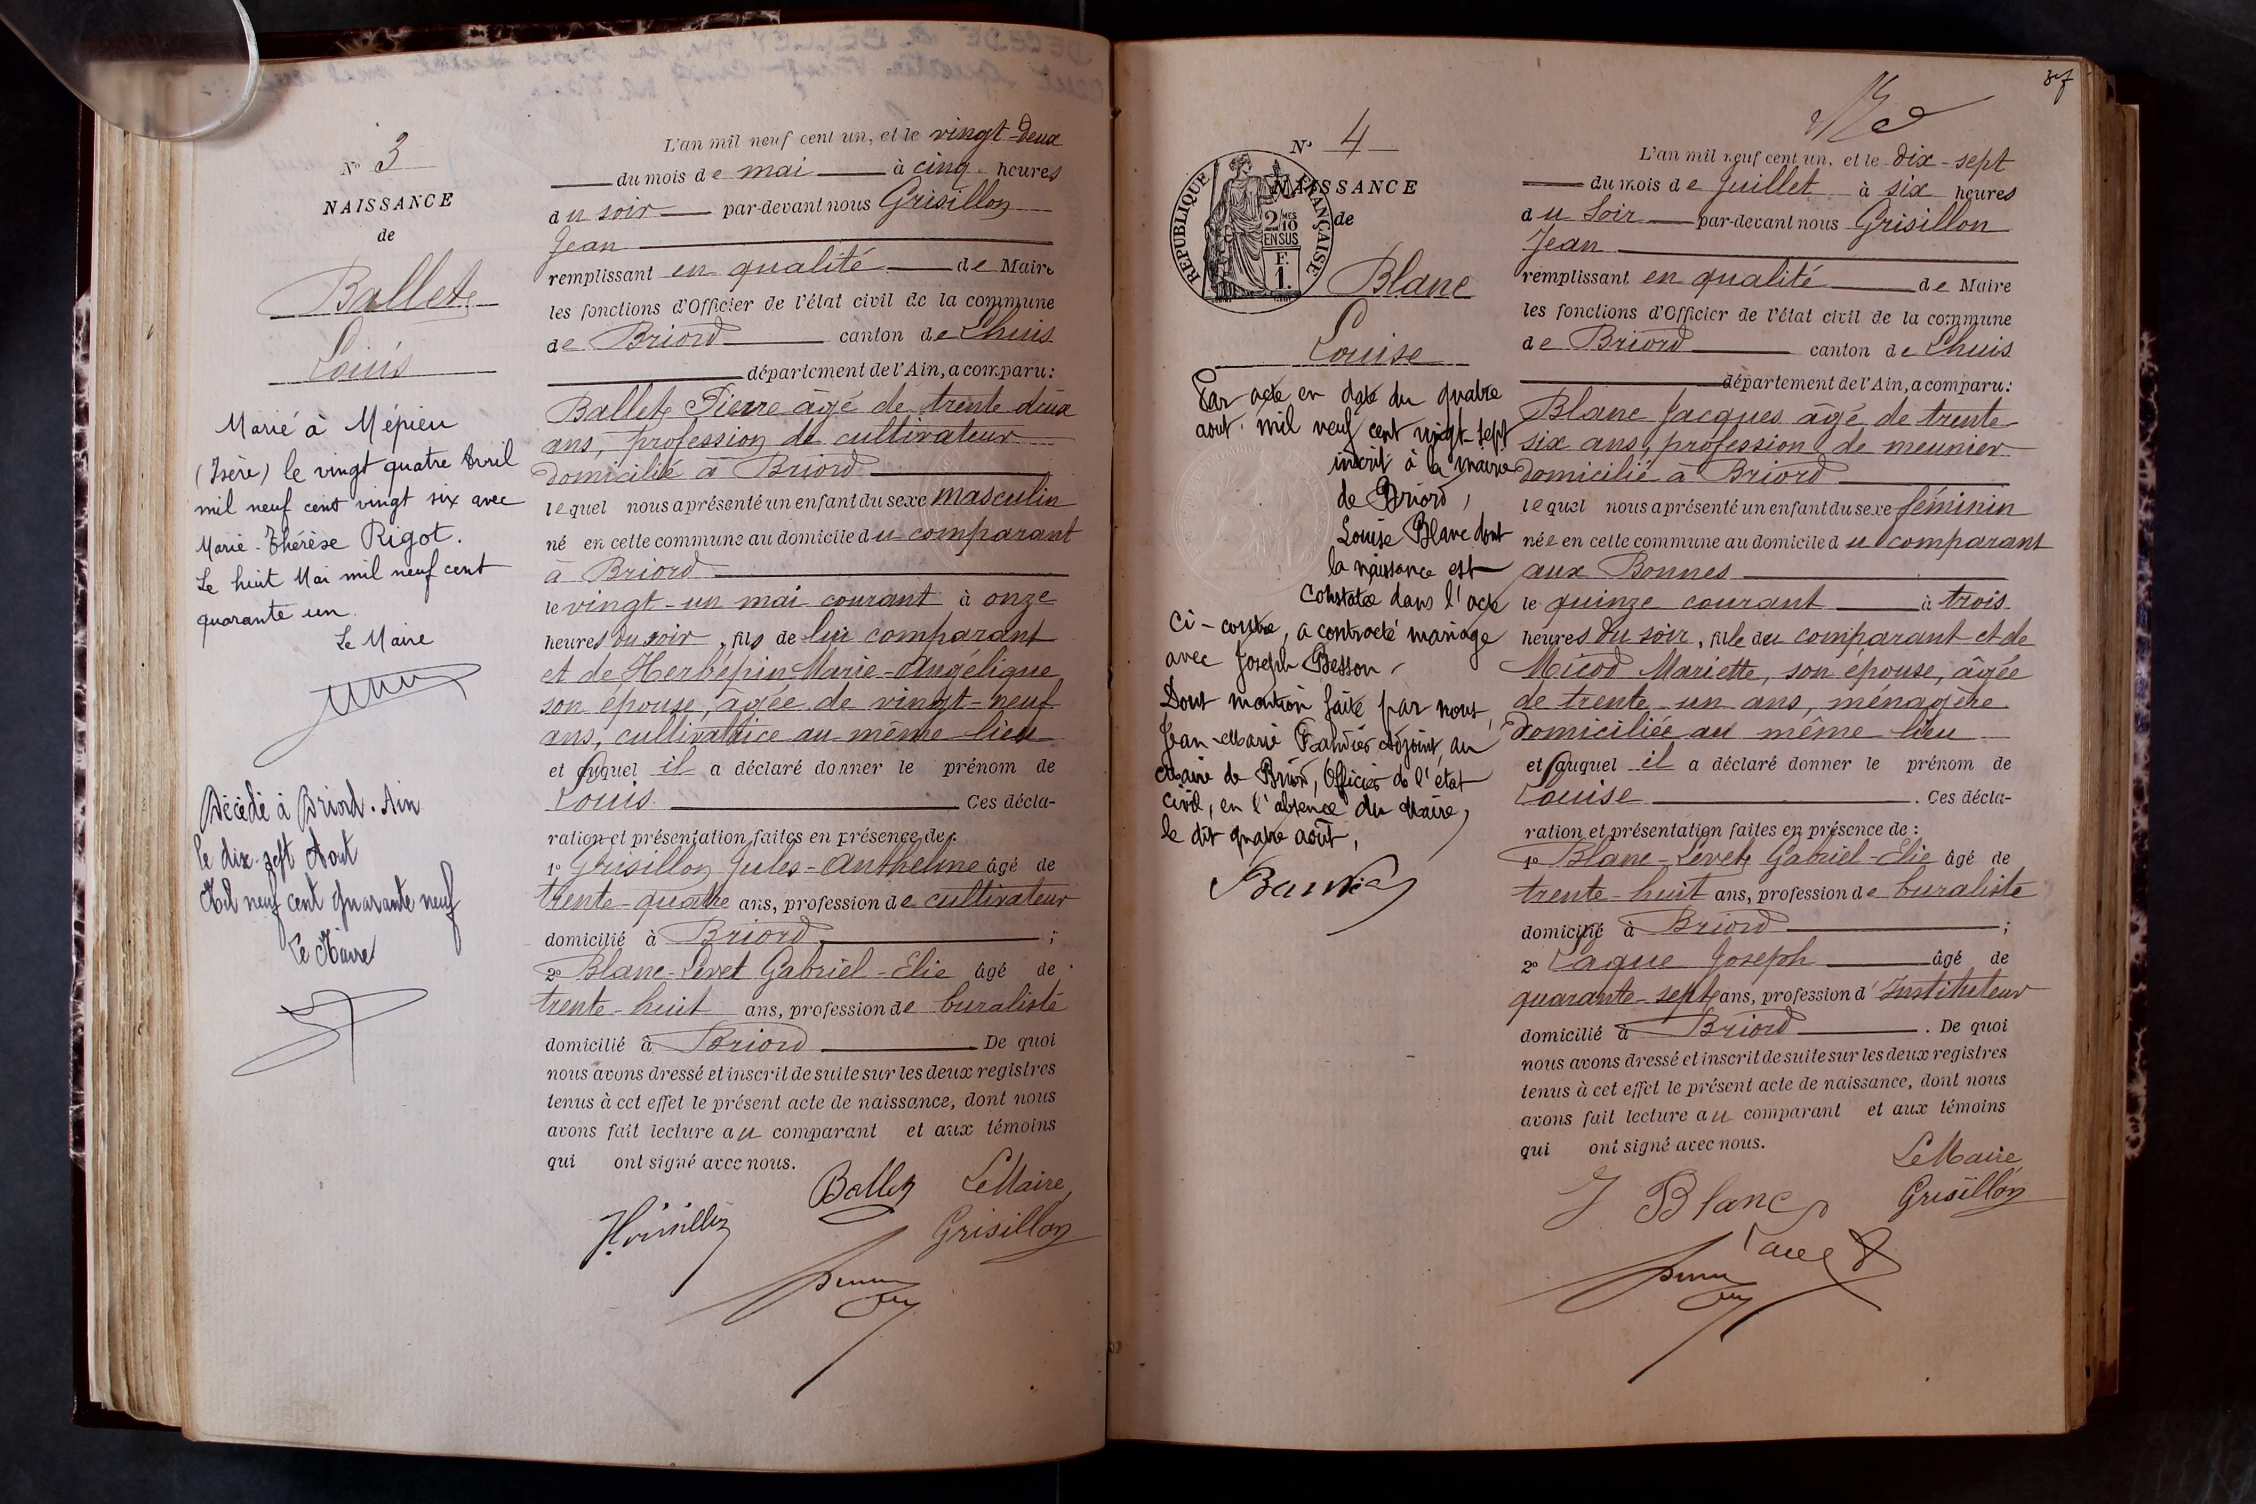 N° 3
NAISSANCE
de
Ballet
Louis
Marié à Mépieu
(Isère) le vingt quatre Avril
mil neuf cent vingt six avec
Marie-Thérèse Rigot.
Le huit Mai mil neuf cent
quarante un.
Le Maire
Décédé à Briord. Ain
le dix-sept Aout
Mil neuf cent quarante neuf
Le Maire
L'an mil neuf cent un, et le vingt-deux
du mois de mai à cinq heures
du soir par-devant nous Grisillon
Jean
remplissant en qualité de Maire
les fonctions d'Officier de l'état civil de la commune
de Briord canton de Lhuis
département de l'Ain, a comparu:
Ballet Pierre âgé de trente deux
ans, profession de cultivateur
domicilié à Briord
lequel nous a présenté un enfant du sexe masculin
né en cette commune au domicile du comparant
à Briord
le vingt-un mai courant à onze
heures du soir, fils de lui comparant
et de Herbépin Marie-Angélique
son épouse, âgée de vingt-neuf
ans, cultivatrice au même lieu
et auquel il a déclaré donner le prénom de
Louis Ces décla-
ration et présentation faites en présence de:
1° Grisillon Jules-Anthelme âgé de
trente-quatre ans, profession de cultivateur
domicilié à Briord ;
2° Blanc-Levet Gabriel-Elie âgé de
trente-huit ans, profession de buraliste
domicilié à Briord De quoi
nous avons dressé et inscrit de suite sur les deux registres
tenus à cet effet le présent acte de naissance, dont nous
avons fait lecture au comparant et aux témoins
qui ont signé avec nous.
Ballet Le Maire
Grisillon
37
N° 4
NAISSANCE
de
RÉPUBLIQUE FRANÇAISE
2/10 EN SUS
F. 1.
Blanc
Louise
Par acte en date du quatre
aout mil neuf cent vingt-sept
inscrit à la mairie
de Briord,
Louise Blanc dont
la naissance est
constatée dans l'acte
ci-contre, a contracté mariage
avec Joseph Besson,
Dont mention faite par nous,
Jean-Marie Adjoint au
Maire de Briord, Officier de l'état
civil, en l'absence du Maire,
le dit quatre août,
L'an mil neuf cent un, et le dix-sept
du mois de Juillet à six heures
du soir par-devant nous Grisillon
Jean
remplissant en qualité de Maire
les fonctions d'Officier de l'état civil de la commune
de Briord canton de Lhuis
département de l'Ain, a comparu:
Blanc Jacques âgé de trente
six ans, profession de meunier
domicilié à Briord
lequel nous a présenté un enfant du sexe féminin
née en cette commune au domicile du comparant
aux Bonnes
le quinze courant à trois
heures du soir, fille du comparant et de
Micod Mariette, son épouse, âgée
de trente-un ans, ménagère
domiciliée au même lieu
et auquel il a déclaré donner le prénom de
Louise . Ces décla-
ration et présentation faites en présence de:
1° Blanc-Levet Gabriel-Elie âgé de
trente-huit ans, profession de buraliste
domicilié à Briord ;
2° Laque Joseph âgé de
quarante-sept ans, profession d'Instituteur
domicilié à Briord . De quoi
nous avons dressé et inscrit de suite sur les deux registres
tenus à cet effet le présent acte de naissance, dont nous
avons fait lecture au comparant et aux témoins
qui ont signé avec nous.
Le Maire
J Blanc Grisillon